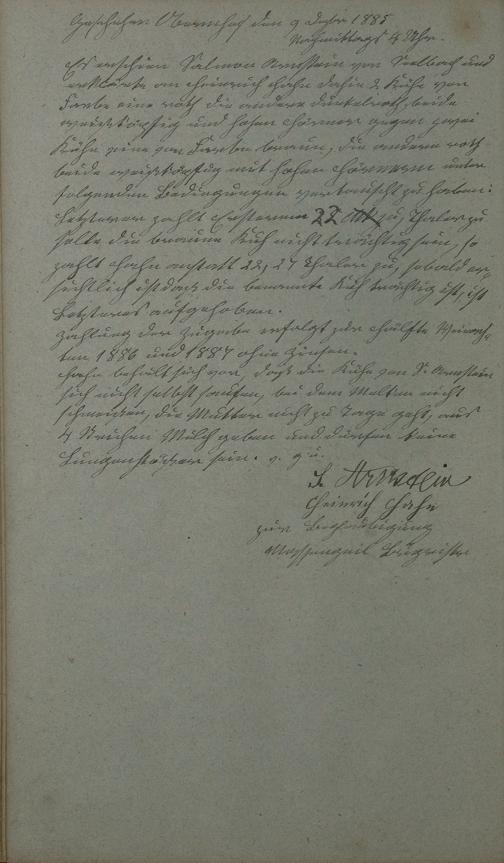 Geschehen Obernhof den 9 Dezbr 1885
Nachmittags 4 Uhr.
Es erschien Salmon Arnstein von Seelbach und
erklärte an Heinrich Hahn dahir 2 Kühe von
Farbe eine roth die andere dunkelroth beide
weisköpfig und hohen Hörner gegen zwei
Kühe eine von Farbe braun, die andere roth
beide weisköpfig mit hohen Hörnern unter
folgenden Bedingungen vertauscht zu haben:
Letzterer zahlt Ersterem 22 Thaler zu
solte die braune Kuh nicht trächtig sein, so
zahlt Hahn anstatt 22, 27 Thaler zu, sobald er
sichtlich ist daß die benannte Kuh trächtig ist, ist
Letzteres aufgehoben.
Zahlung der Zugabe erfolgt zur Hälfte Weinach-
ten 1886 und 1887 ohne Zinsen.
Hahn behält sich vor, daß die Kühe von S. Arnstein
sich nicht selbst saufen, bei dem Melken nicht
schmeißen, die Mutter nicht zu Tage geht, aus
4 Strichen Milch geben und dürfen keine
sein. v. g. u.
S. Arnstein
Heinrich Hahn
zur Beglaubigung
Bürgmstr